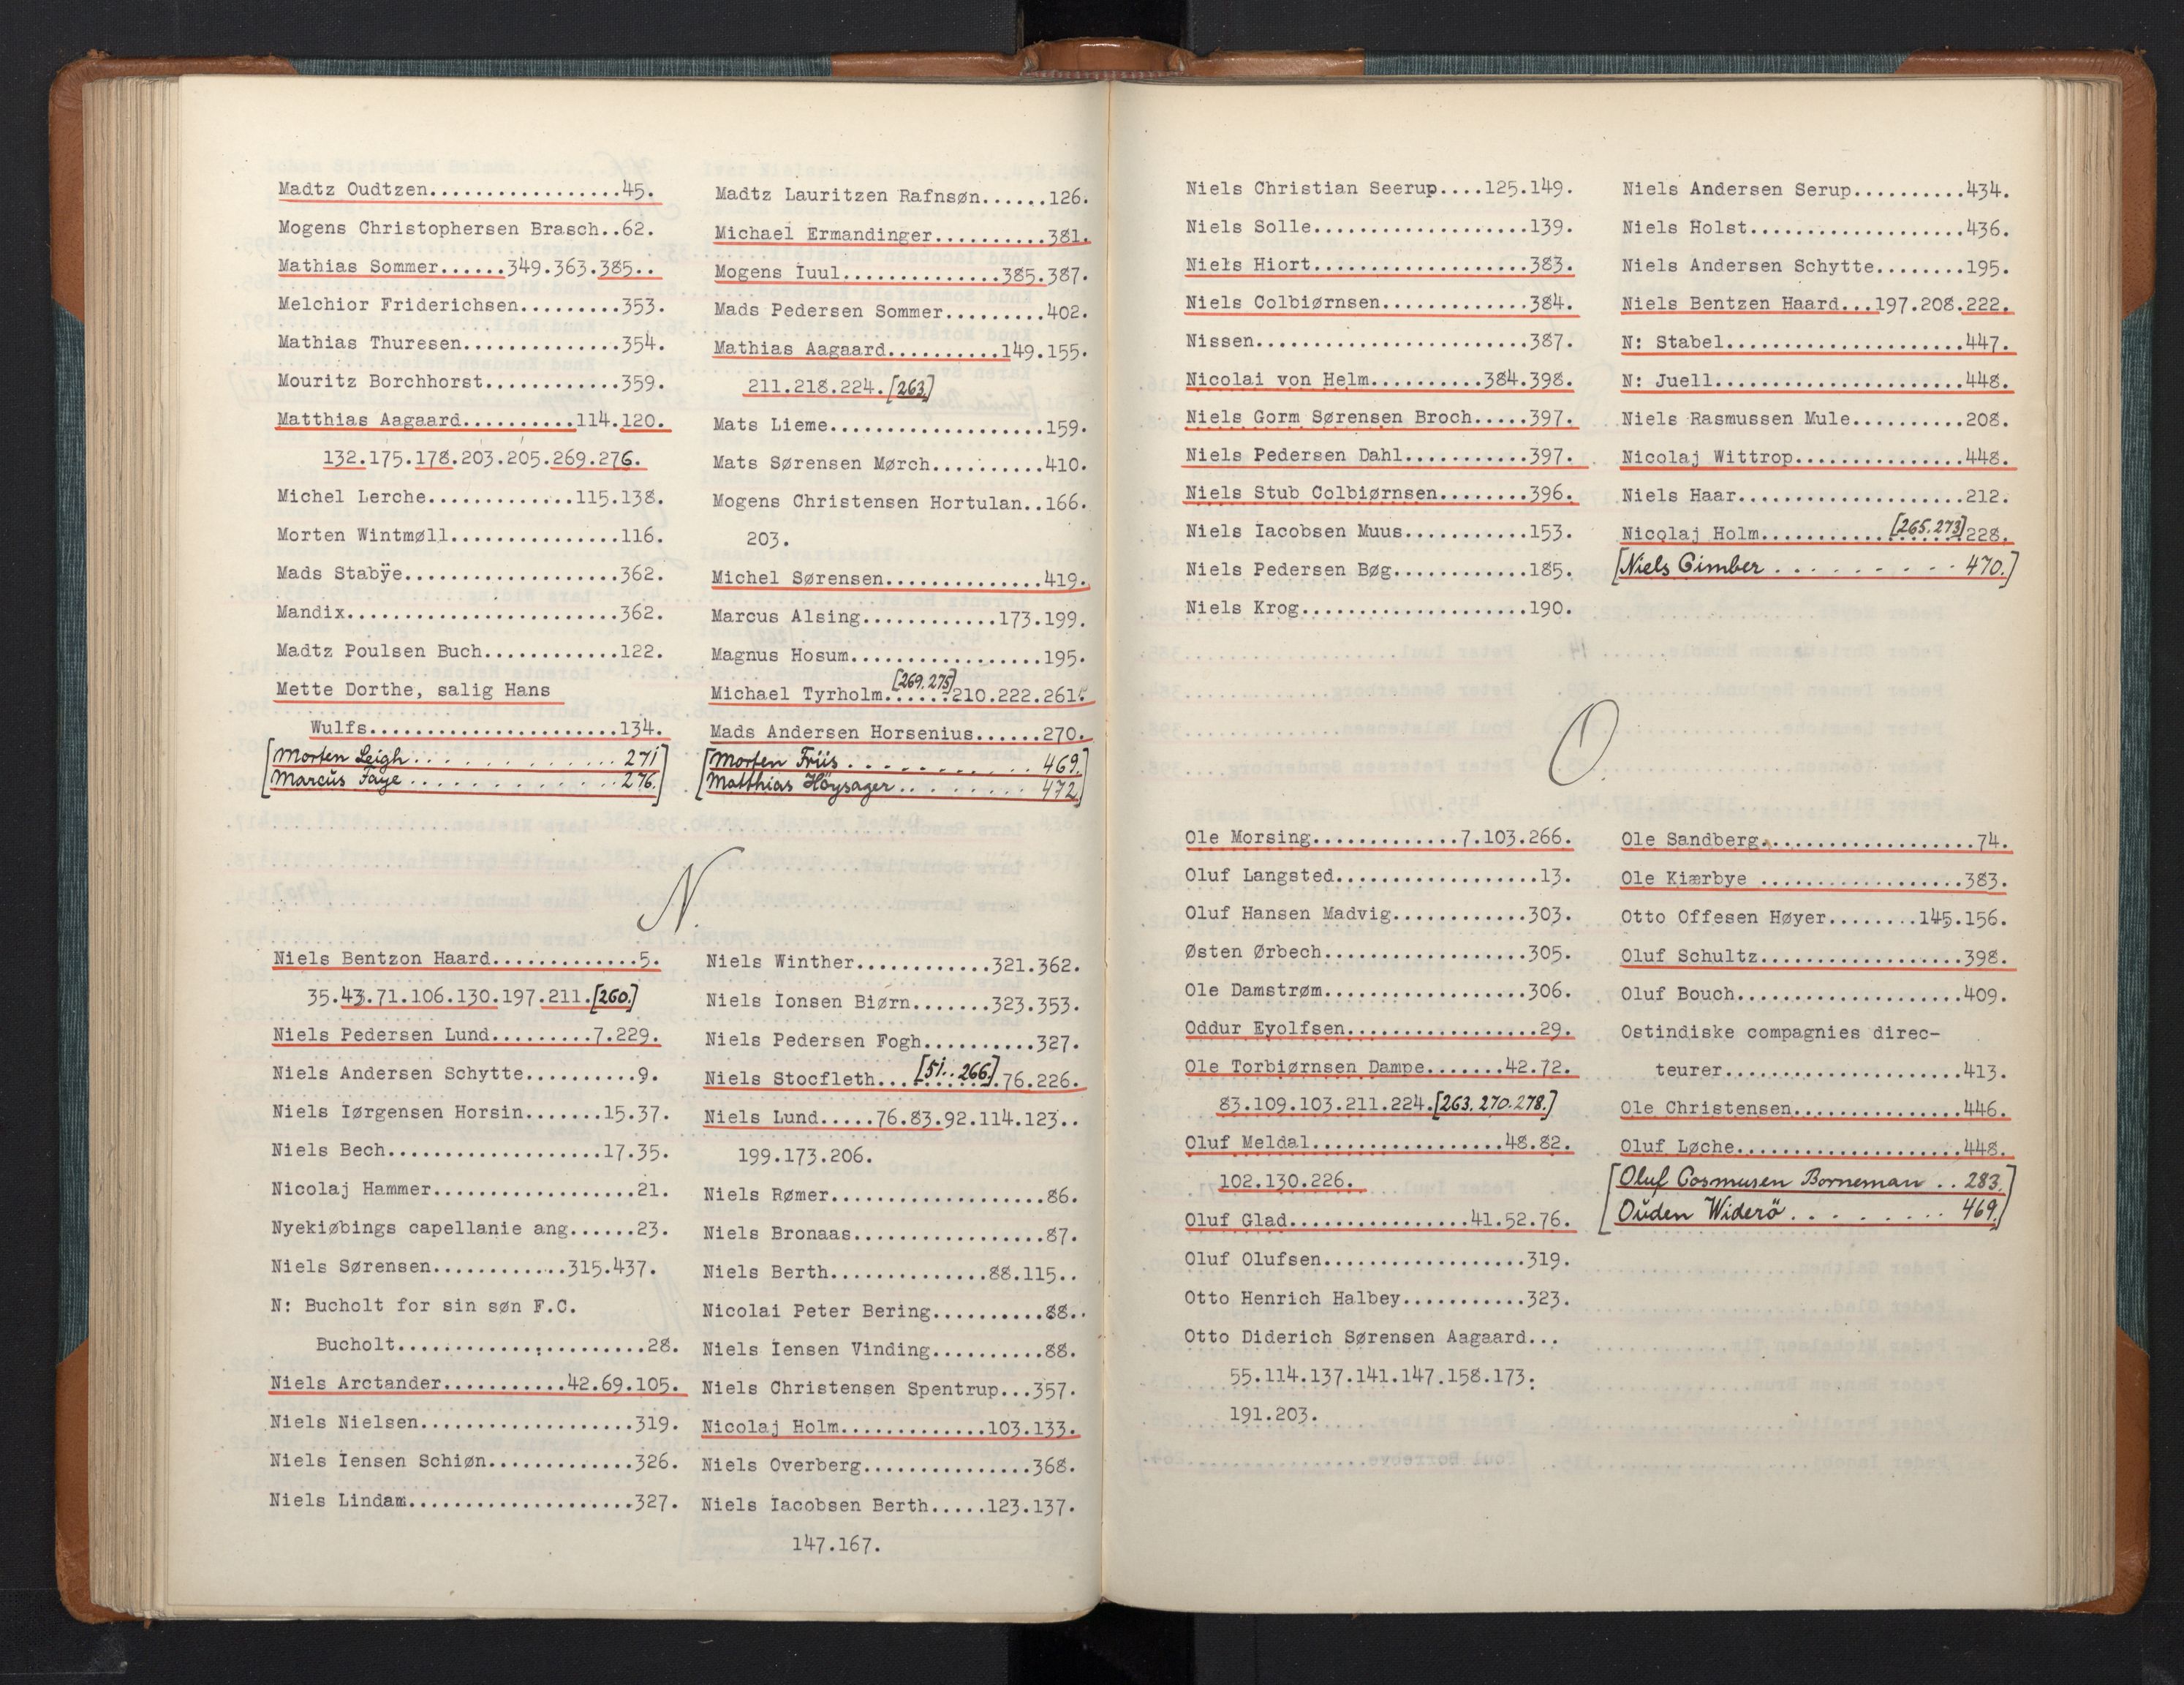 Madtz Oudtzen.................45.
Mogens Christophersen Brasch..62.
Mathias Sommer......349.363.385..
Melchior Friderichsen.........353.
Mathias Thuresen..............354.
Mouritz Borchhorst............359.
Matthias Aagaard..........114.120.
132.175.178.203.205.269.276.
Michel Lerche.............115.138.
Morten Wintmøll...............116.
Mads Stabÿe...................362.
Mandix........................362.
Madtz Poulsen Buch............122.
Mette Dorthe, salig Hans
Wulfs......................134.
[Morten Leigh............. 271]
[Marcus Faye.............. 276.]
Madtz Lauritzen Rafnsøn......126.
Michael Ermandinger..........381.
Mogens Iuul..............385.387.
Mads Pedersen Sommer.........402.
Mathias Aagaard..........149.155.
211.218.224.[263.]
Mats Lieme...................159.
Mats Sørensen Mørch..........410.
Mogens Christensen Hortulan..166.
203.
Michel Sørensen..............419.
Marcus Alsing............173.199.
Magnus Hosum.................195.
Michael Tyrholm......[269.275]210.222.261.
Mads Andersen Horsenius......270.
[Morten Friis........... 469.]
[Matthias Höysager......... 472.]
N.
Niels Bentzon Haard.............5.
35.43.71.106.130.197.211.[260.]
Niels Pedersen Lund.........7.229.
Niels Andersen Schytte..........9.
Niels Iørgensen Horsin.......15.37.
Niels Bech...................17.35.
Nicolaj Hammer..................21.
Nyekiøbings capellanie ang......23.
Niels Sørensen............315.437.
N: Bucholt for sin søn F.C.
Bucholt......................28.
Niels Arctander...........42.69.105.
Niels Nielsen...................319.
Niels Iensen Schiøn.............326.
Niels Lindam....................327.
Niels Winther............321.362.
Niels Ionsen Biørn.......323.353.
Niels Pedersen Fogh..........327.
Niels Stocfleth...[51..266.].76.226.
Niels Lund.....76.83.92.114.123..
199.173.206.
Niels Rømer...................86.
Niels Bronaas.................87.
Niels Berth..............88.115..
Nicolai Peter Bering..........88..
Niels Iensen Vinding..........88.
Niels Christensen Spentrup...357.
Nicolaj Holm.............103.133.
Niels Overberg...............368.
Niels Iacobsen Berth.....123.137.
147.167.
Niels Christian Seerup....125.149.
Niels Solle...................139.
Niels Hiort...................383.
Niels Colbiørnsen.............384.
Nissen........................387.
Nicolai von Helm..........384.398.
Niels Gorm Sørensen Broch.....397.
Niels Pedersen Dahl...........397.
Niels Stub Colbiørnsen........396.
Niels Iacobsen Muus...........153.
Niels Pedersen Bøg............185.
Niels Krog....................190.
Niels Andersen Serup..........434.
Niels Holst...................436.
Niels Andersen Schytte........195.
Niels Bentzen Haard...197.208.222.
N: Stabel.....................447.
N: Juell......................448.
Niels Rasmussen Mule..........208.
Nicolaj Wittrop...............448.
Niels Haar....................212.
Nicolaj Holm............[265.273]228.
[Niels Gimber......... 470.]
O.
Ole Morsing.............7.103.266.
Oluf Langsted..................13.
Oluf Hansen Madvig............303.
Østen Ørbech..................305.
Ole Damstrøm..................306.
Oddur Eyolfsen.................29.
Ole Torbiørnsen Dampe.......42.72.
83.109.103.211.224.[263.270.278.]
Oluf Meldal.................48.82.
102.130.226.
Oluf Glad................41.52.76.
Oluf Olufsen..................319.
Otto Henrich Halbey...........323.
Otto Diderich Sørensen Aagaard...
55.114.137.141.147.158.173.
191.203.
Ole Sandberg...................74.
Ole Kiærbye ..................383.
Otto Offesen Høyer........145.156.
Oluf Schultz..................398.
Oluf Bouch....................409.
Ostindiske compagnies direc-
teurer.....................413.
Ole Christensen...............446.
Oluf Løche....................448.
[Oluf Cosmusen Borneman .. 283.]
[Ouden Widerö........ 469.]